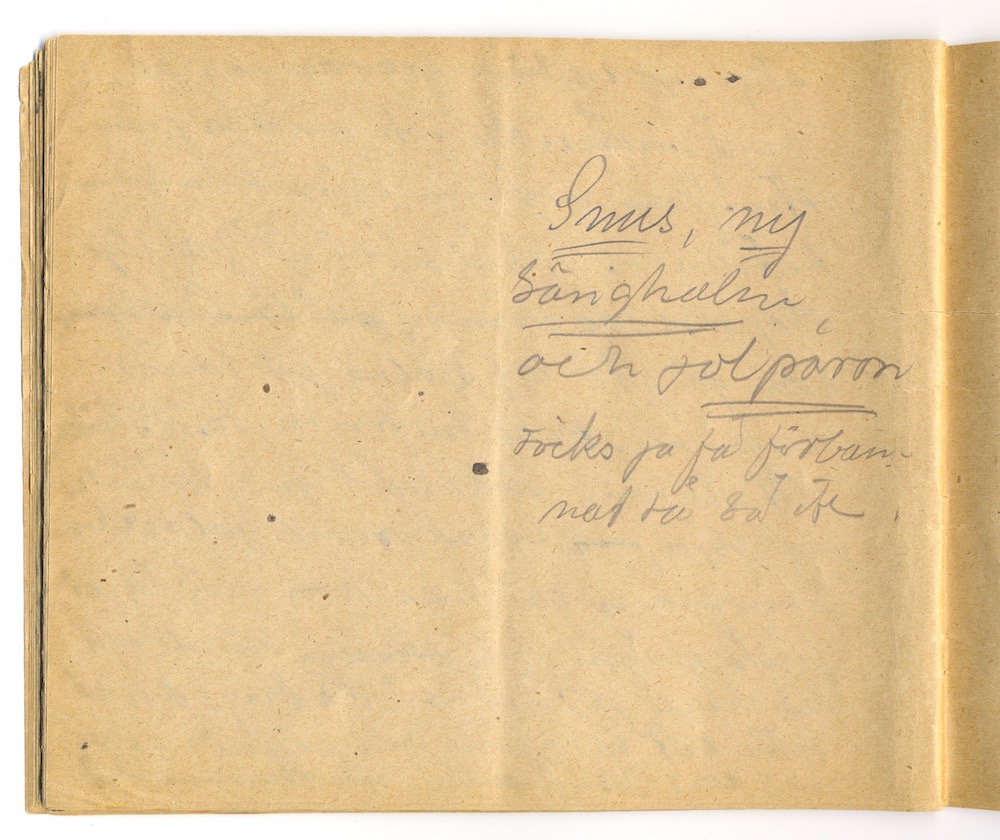 Snus, ny
sänghalm,
och jolpäron
töcks ja få förban-
nat rå så de